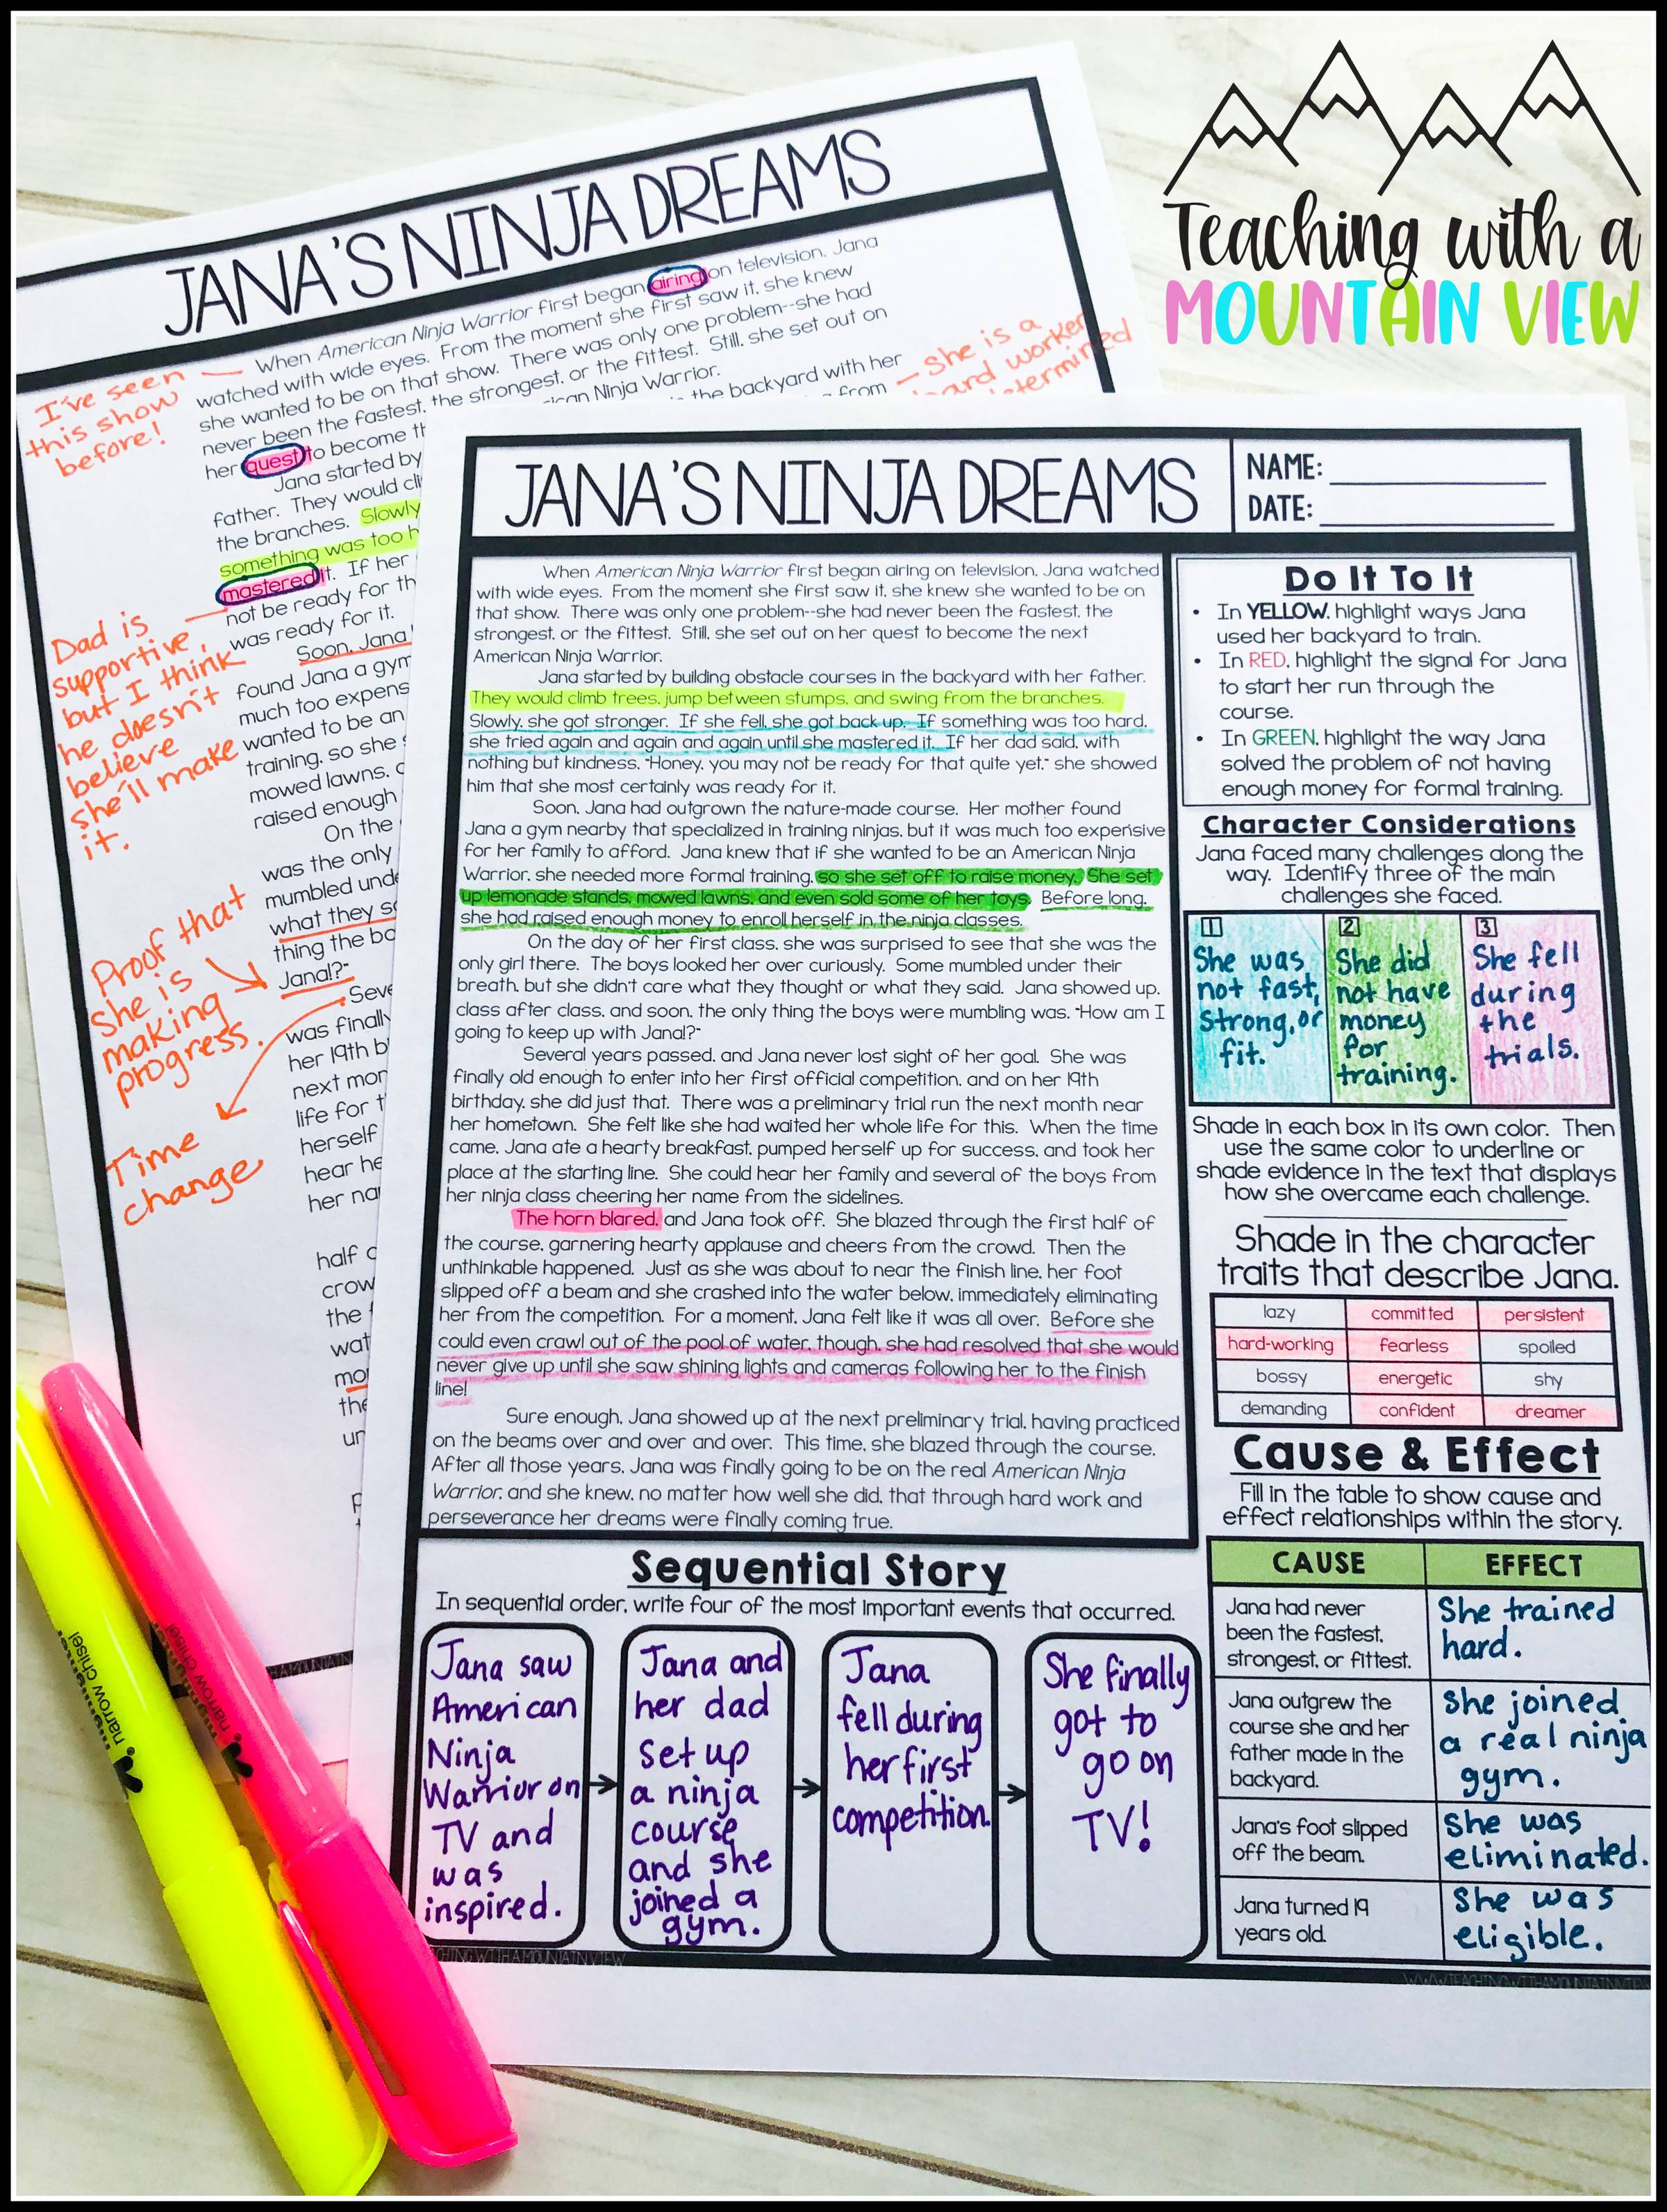 Teaching with a
MOUNTAIN VIEW
JANA'S NINJA DREAMS
When American Ninja Warrior first began airing on television, Jana
watched with wide eyes. From the moment she first saw it, she knew
she wanted to be on that show. There was only one problem--she had
never been the fastest, the strongest, or the fittest. Still, she set out on
her quest to become
Ninja Warrior.
Jana started by
the backyard with her
father. They would
from
the branches. Slowly
something was too
mastered it. If her
not be ready for
was ready for it.
Soon, Jana
found Jana a gym
much too
wanted to be an
training, so she
mowed lawns,
raised enough
On the
was the only
mumbled
what they
thing the
Jana!?"
was finally
her 19th
next
life for
herself
hear
her
half
the
the
I've seen
this show
before!
She is a
hard worker
Dad is
supportive,
but I think
he doesn't
believe
she'll make
it.
Proof that
she is
making
progress.
Time
change
JANA'S NINJA DREAMS
NAME:
DATE:
When American Ninja Warrior first began airing on television, Jana watched
with wide eyes. From the moment she first saw it, she knew she wanted to be on
that show. There was only one problem--she had never been the fastest, the
strongest, or the fittest. Still, she set out on her quest to become the next
American Ninja Warrior.
Jana started by building obstacle courses in the backyard with her father.
They would climb trees, jump between stumps, and swing from the branches.
Slowly, she got stronger. If she fell, she got back up. If something was too hard,
she tried again and again and again until she mastered it. If her dad said, with
nothing but kindness, "Honey, you may not be ready for that quite yet," she showed
him that she most certainly was ready for it.
Soon, Jana had outgrown the nature-made course. Her mother found
Jana a gym nearby that specialized in training ninjas, but it was much too expensive
for her family to afford. Jana knew that if she wanted to be an American Ninja
Warrior, she needed more formal training, so she set off to raise money. She set
up lemonade stands, mowed lawns, and even sold some of her toys. Before long,
she had raised enough money to enroll herself in the ninja classes.
On the day of her first class, she was surprised to see that she was the
only girl there. The boys looked her over curiously. Some mumbled under their
breath, but she didn't care what they thought or what they said. Jana showed up,
class after class, and soon, the only thing the boys were mumbling was, "How am I
going to keep up with Jana!?"
Several years passed, and Jana never lost sight of her goal. She was
finally old enough to enter into her first official competition, and on her 19th
birthday, she did just that. There was a preliminary trial run the next month near
her hometown. She felt like she had waited her whole life for this. When the time
came, Jana ate a hearty breakfast, pumped herself up for success, and took her
place at the starting line. She could hear her family and several of the boys from
her ninja class cheering her name from the sidelines.
The horn blared, and Jana took off. She blazed through the first half of
the course, garnering hearty applause and cheers from the crowd. Then the
unthinkable happened. Just as she was about to near the finish line, her foot
slipped off a beam and she crashed into the water below, immediately eliminating
her from the competition. For a moment, Jana felt like it was all over. Before she
could even crawl out of the pool of water, though, she had resolved that she would
never give up until she saw shining lights and cameras following her to the finish
line!
Sure enough, Jana showed up at the next preliminary trial, having practiced
on the beams over and over and over. This time, she blazed through the course.
After all those years, Jana was finally going to be on the real American Ninja
Warrior, and she knew, no matter how well she did, that through hard work and
perseverance her dreams were finally coming true.
Do It To It
• In YELLOW, highlight ways Jana
used her backyard to train.
• In RED, highlight the signal for Jana
to start her run through the
course.
• In GREEN, highlight the way Jana
solved the problem of not having
enough money for formal training.
Character Considerations
Jana faced many challenges along the
way. Identify three of the main
challenges she faced.
1
She was
not fast,
strong, or
fit.
2
She did
not have
money
for
training.
3
She fell
during
the
trials.
Shade in each box in its own color. Then
use the same color to underline or
shade evidence in the text that displays
how she overcame each challenge.
Shade in the character
traits that describe Jana.
lazy committed persistent
hard-working fearless spoiled
bossy energetic shy
demanding confident dreamer
Cause & Effect
Fill in the table to show cause and
effect relationships within the story.
CAUSE EFFECT
Jana had never
been the fastest,
strongest, or fittest.
She trained
hard.
Jana outgrew the
course she and her
father made in the
backyard.
She joined
a real ninja
gym.
Jana's foot slipped
off the beam.
She was
eliminated.
Jana turned 19
years old.
She was
eligible.
Sequential Story
In sequential order, write four of the most important events that occurred.
Jana saw
American
Ninja
Warrior on
TV and
was
inspired.
Jana and
her dad
set up
a ninja
course
and she
joined a
gym.
Jana
fell during
her first
competition.
She finally
got to
go on
TV!
narrow chisel
narrow chisel